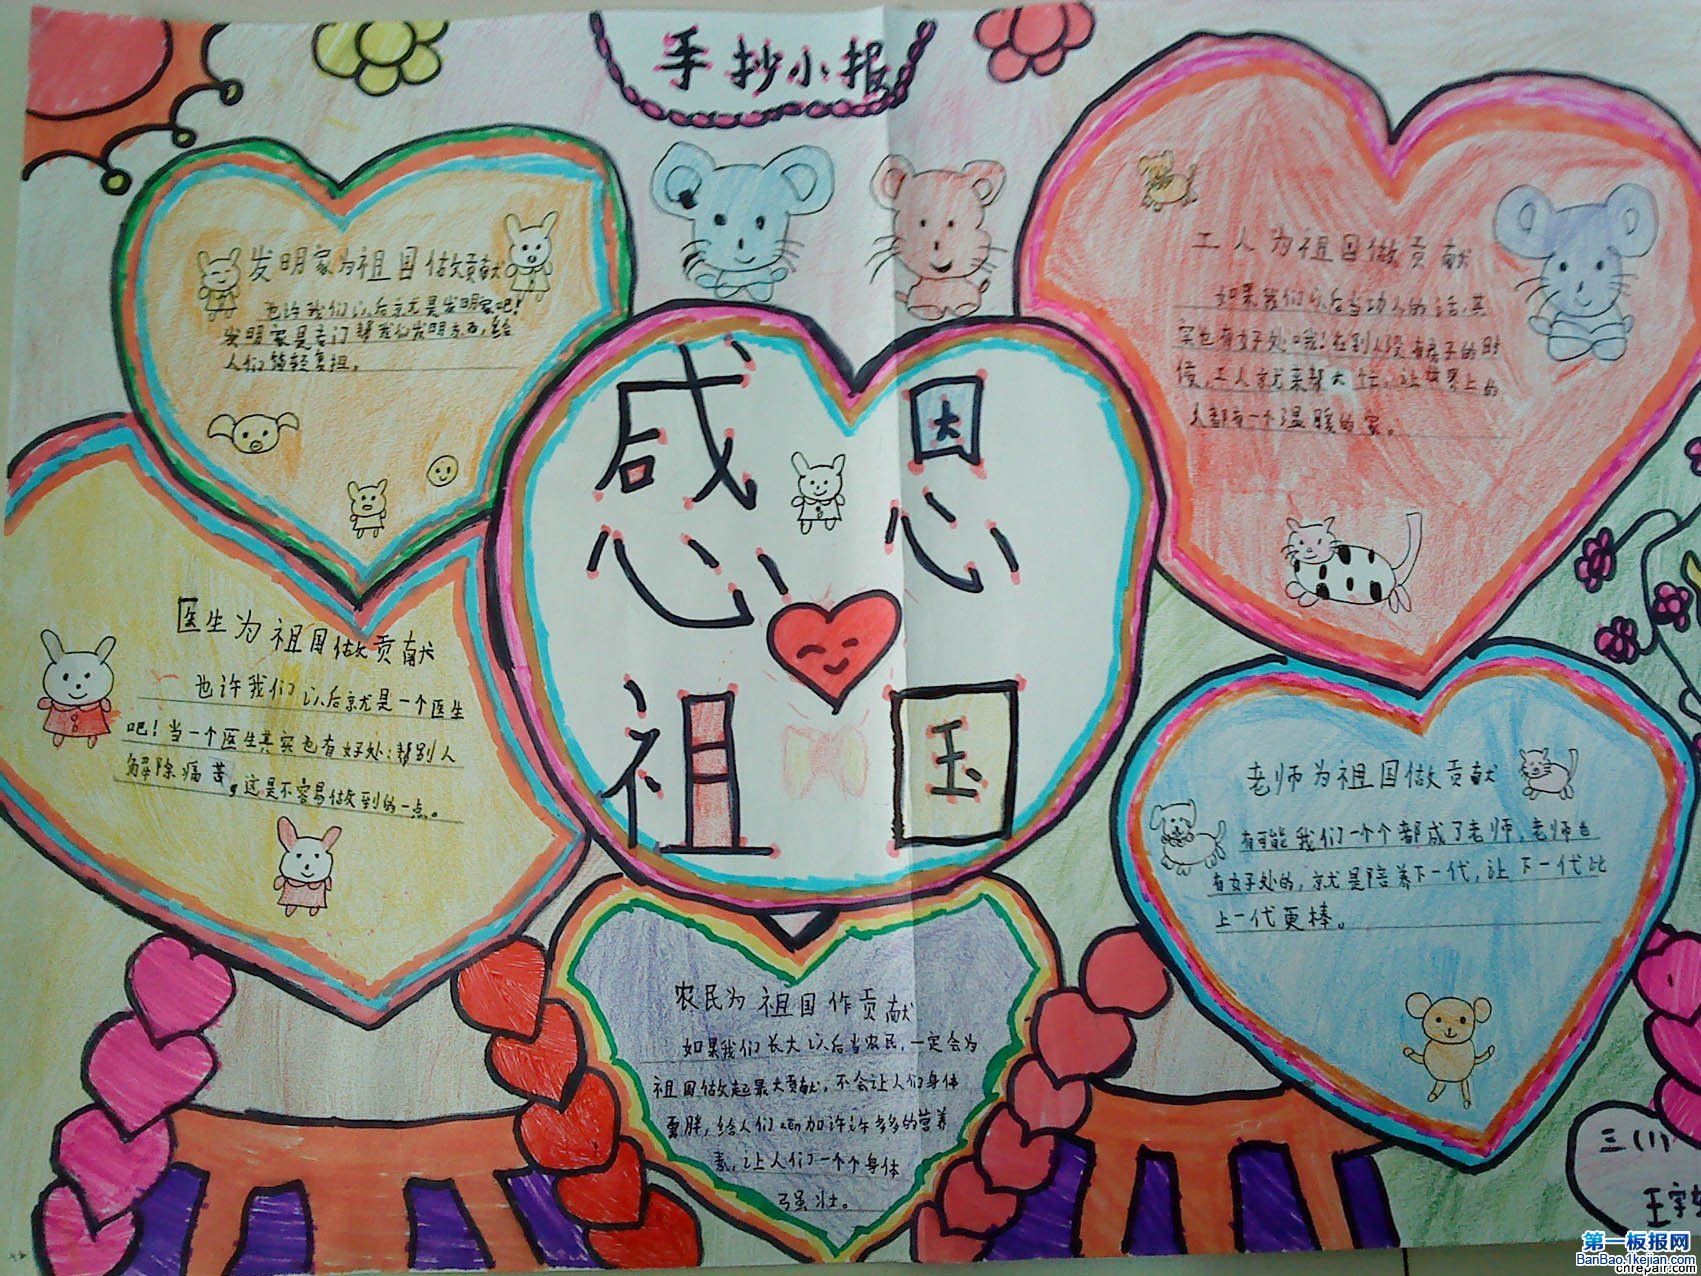 手抄小报
发明家为祖国做贡献
也许我们以后就是发明家吧!
发明家是专门帮我们发明东西,给
人们减轻负担。
工人为祖国做贡献
如果我们以后当功人的话,其
实也有好处哦!在别人没有房子的时
侯,工人就来帮大忙,让世界上的
人都有一个温暖的家。
感恩
祖国
医生为祖国做贡献
也许我们以后就是一个医生
吧!当一个医生其实也有好处:帮别人
解除痛苦,这是不容易做到的一点。
老师为祖国做贡献
有可能我们一个个都成了老师,老师也
有好处的,就是陪养下一代,让下一代比
上一代更棒。
农民为祖国作贡献
如果我们长大以后当农民,一定会为
祖国做起最大贡献,不会让人们身体
更胖,给人们zen加许许多多的营养
素,让人们一个个身体
强壮。
三(1)
王宇
第一板报网
BanBao.1kejian.com
cnrepair.com